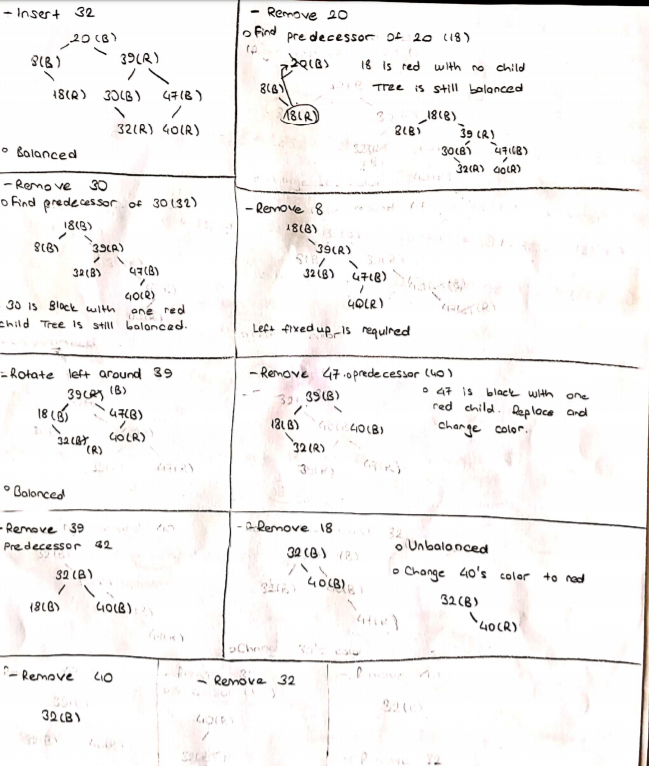 - Insert 32
20(B)
8(B) 39(R)
18(R) 30(B) 47(B)
32(R) 40(R)
° Balanced
- Remove 20
o Find predecessor of 20 (18)
20(B) 18 is red with no child
8(B) Tree is still balanced
18(R)
18(B)
8(B) 39(R)
30(B) 47(B)
32(R) 40(R)
- Remove 30
o Find predecessor of 30 (32)
18(B)
8(B) 39(R)
32(B) 47(B)
40(R)
30 is Black with one red
child Tree is still balanced.
- Remove 8
18(B)
39(R)
32(B) 47(B)
40(R)
Left fixed up is required
- Rotate left around 39
39(R) (B)
18(B) 47(B)
32(B) (R) 40(R)
° Balanced
- Remove 47 . predecessor (40)
39(B)
18(B) 40(B)
32(R)
° 47 is black with one
red child. Replace and
change color.
- Remove 39
Predecessor 32
32(B)
18(B) 40(B)
- Remove 18
32(B)
40(B)
o Unbalanced
o Change 40's color to red
32(B)
40(R)
- Remove 40
32(B)
- Remove 32